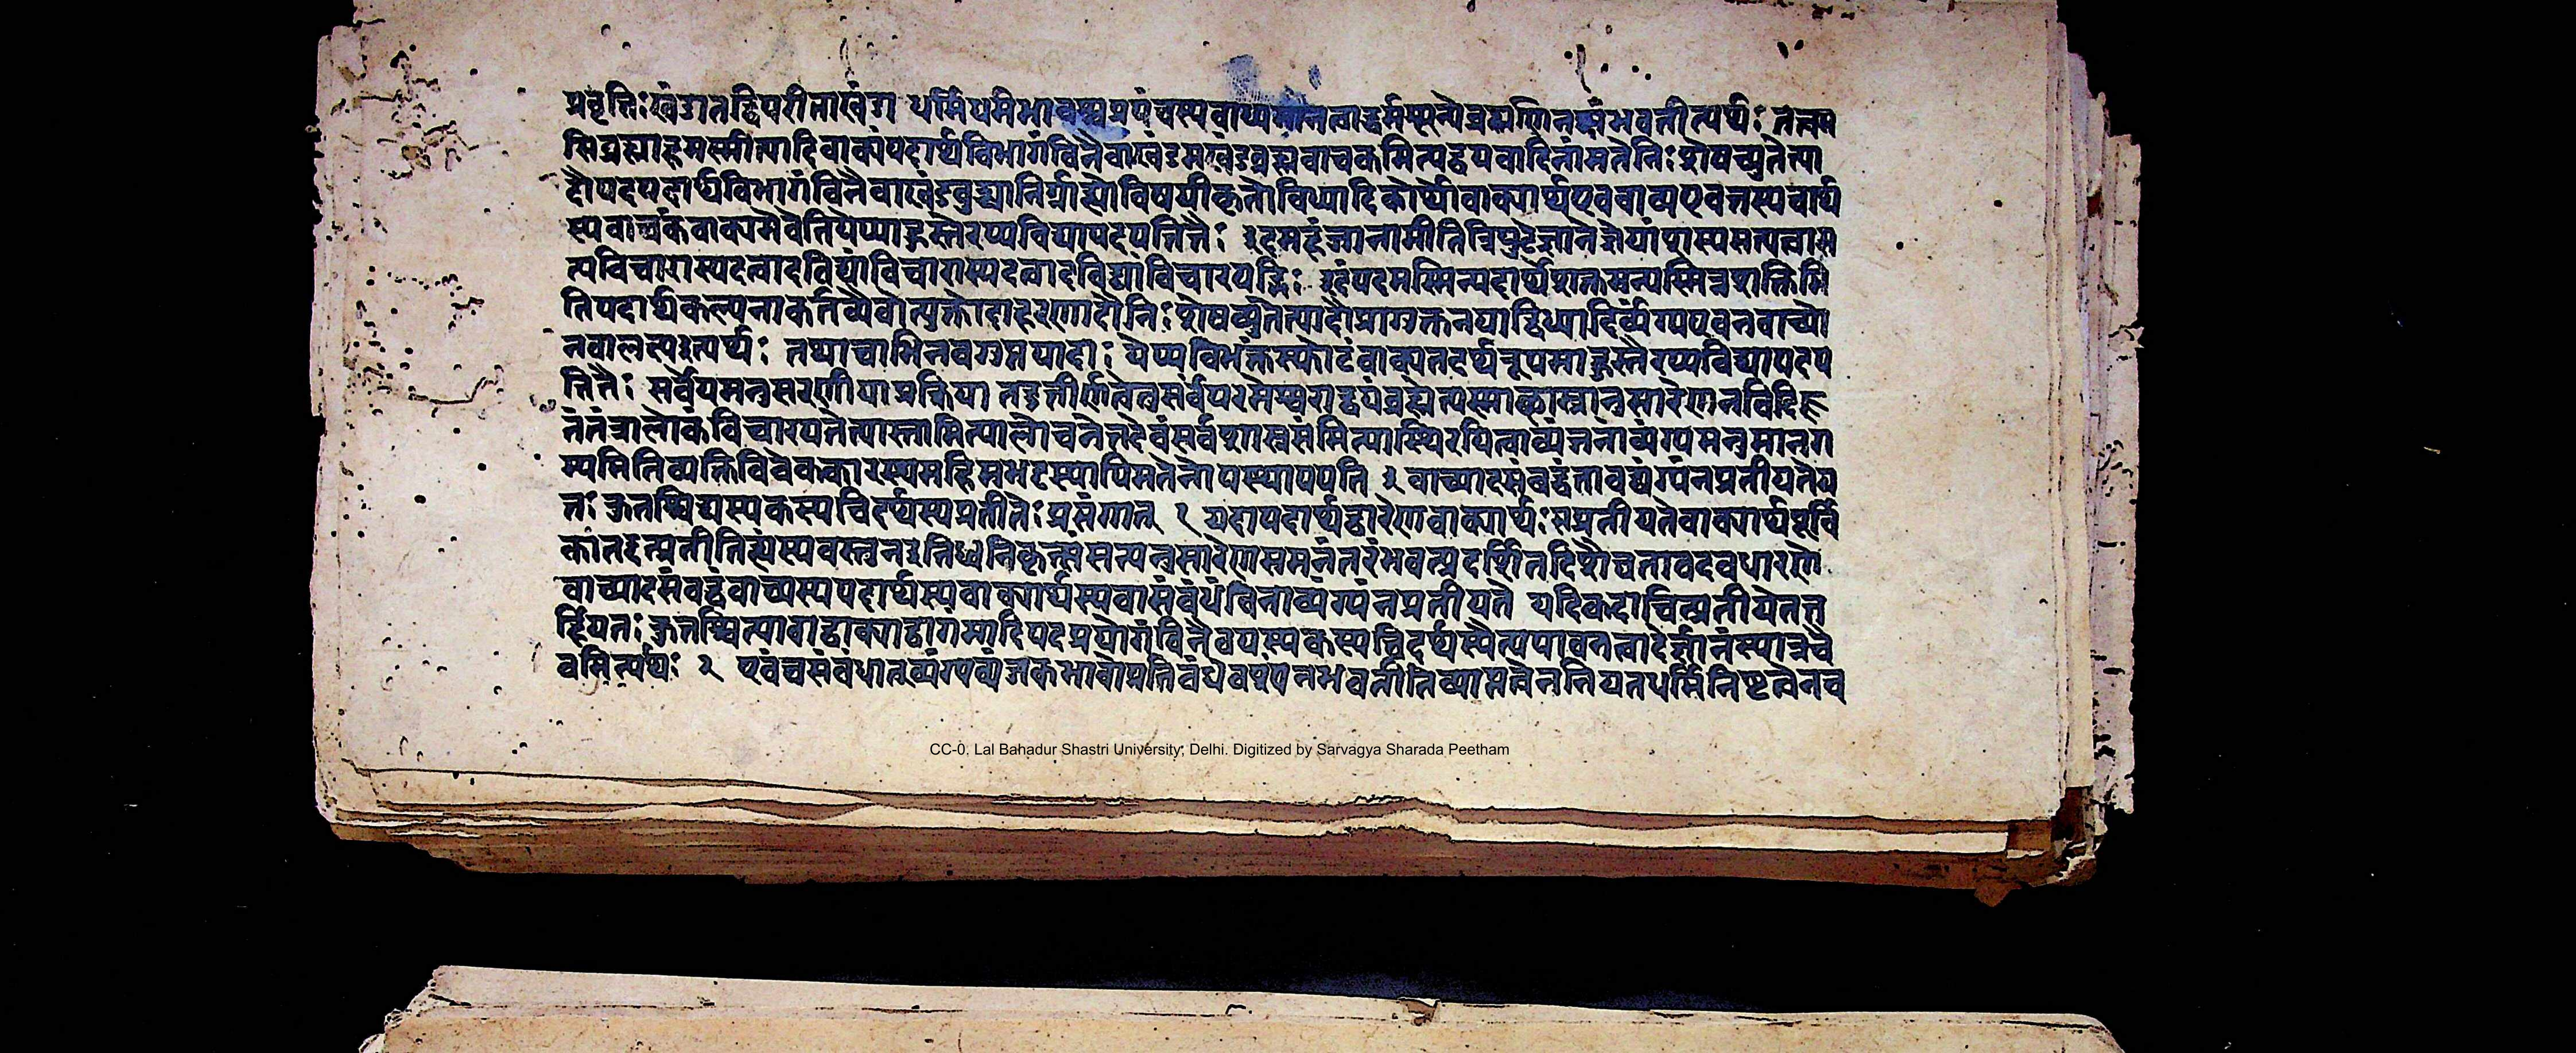 प्रवृत्तिः खंडा तद्विपरीताखंडा धर्मिधर्मभावस्य प्रपंचस्य वाध्यमानत्वाद्धर्मस्पृत्ये ब्रह्मणि न संभवतीत्यर्थः तत्त्वम
सि ब्रह्माहमस्मीत्यादिवाक्यं पदार्थविभागं विनैवाखंडमखंडब्रह्मवाचकमित्यद्वयवादिनां मतेनिःशेषच्युतेत्या
दौ पदपदार्थविभागं विनैवाखंडबुद्ध्यानिर्ग्राह्योविषयीकृतोविध्यादिकोर्थोवाक्यार्थएववाच्यएवतस्यचार्थ
स्यवाचकंवाक्यमेवेतियेप्याहुस्तैरप्यविद्यापदपतितैः इदमहंजानामीतित्रिपुटेज्ञानेज्ञेयांशस्यसत्यत्वास
त्यविचारास्पदत्वादविद्यांविचारास्पदत्वादविद्यांविचारयद्भिः इदंपदमस्मिन्पदार्थेशक्तमन्यस्मिन्नशक्तमि
तिपदार्थकल्पनाकर्तव्यैवेत्युक्तोदाहरणादौनिःशेषच्युतेत्यादौप्रागुक्तनयाद्विध्यादिर्व्यंग्यएवनवाच्यो
नवालक्ष्यइत्यर्थः तथाचाभिनवगुप्तपादाः येप्यविभक्तंस्फोटंवाक्यतदर्थरूपमाहुस्तैरप्यविद्यापदप
तितैः सर्वेयमनुसरणीयाप्रक्रिया तदुत्तीर्णत्वेतुसर्वंपरमेश्वराद्वयंब्रह्मेत्यस्मच्छास्त्रानुसारेणनविदि
तंतंत्रालोकंविचारयतेत्यास्तामित्यालोचनेतदेवंसर्वशास्त्रसंमित्यास्थिरयित्वाव्यंजनांव्यंग्यमनुमानग
म्यमितिव्यक्तिविवेककारस्यमहिमभट्टस्यापिमतेनोपस्थापयति १ वाच्यादसंबद्धंतावद्व्यंग्यंनप्रतीयतेय
तः कुतश्चिद्यस्यकस्यचिदर्थस्यप्रतीतेः प्रसंगात् १ यदापदार्थद्वारेणवाक्यार्थः संप्रतीयतेवाक्यार्थपूर्वि
कातद्वत्प्रतीतिस्यवस्तुनइतिध्वनिकृत्संमत्यनुसारेणसमनंतरंभवत्प्रदर्शितदिशैवतावदवधारणे
वाच्यादसंबद्धंवाच्यस्यपदार्थस्यवाक्यार्थस्यवासंबंधंविनाव्यंग्यंनप्रतीयते यदिकदाचित्प्रतीयेतत
र्हियतः कुतश्चित्पादाद्वाक्याद्वागमादिपदप्रयोगंविनैवयस्यकस्यचिदर्थस्यैत्यपावनत्वादेर्ज्ञानंस्यान्नचै
वमित्यर्थः २ एवंचसंबंधात्व्यंग्यव्यंजकभावोप्रतिबंधेवश्यंनभवतीतिव्याप्तत्वेननियतधर्मिनिष्ठत्वेनच
CC-0. Lal Bahadur Shastri University, Delhi. Digitized by Sarvagya Sharada Peetham